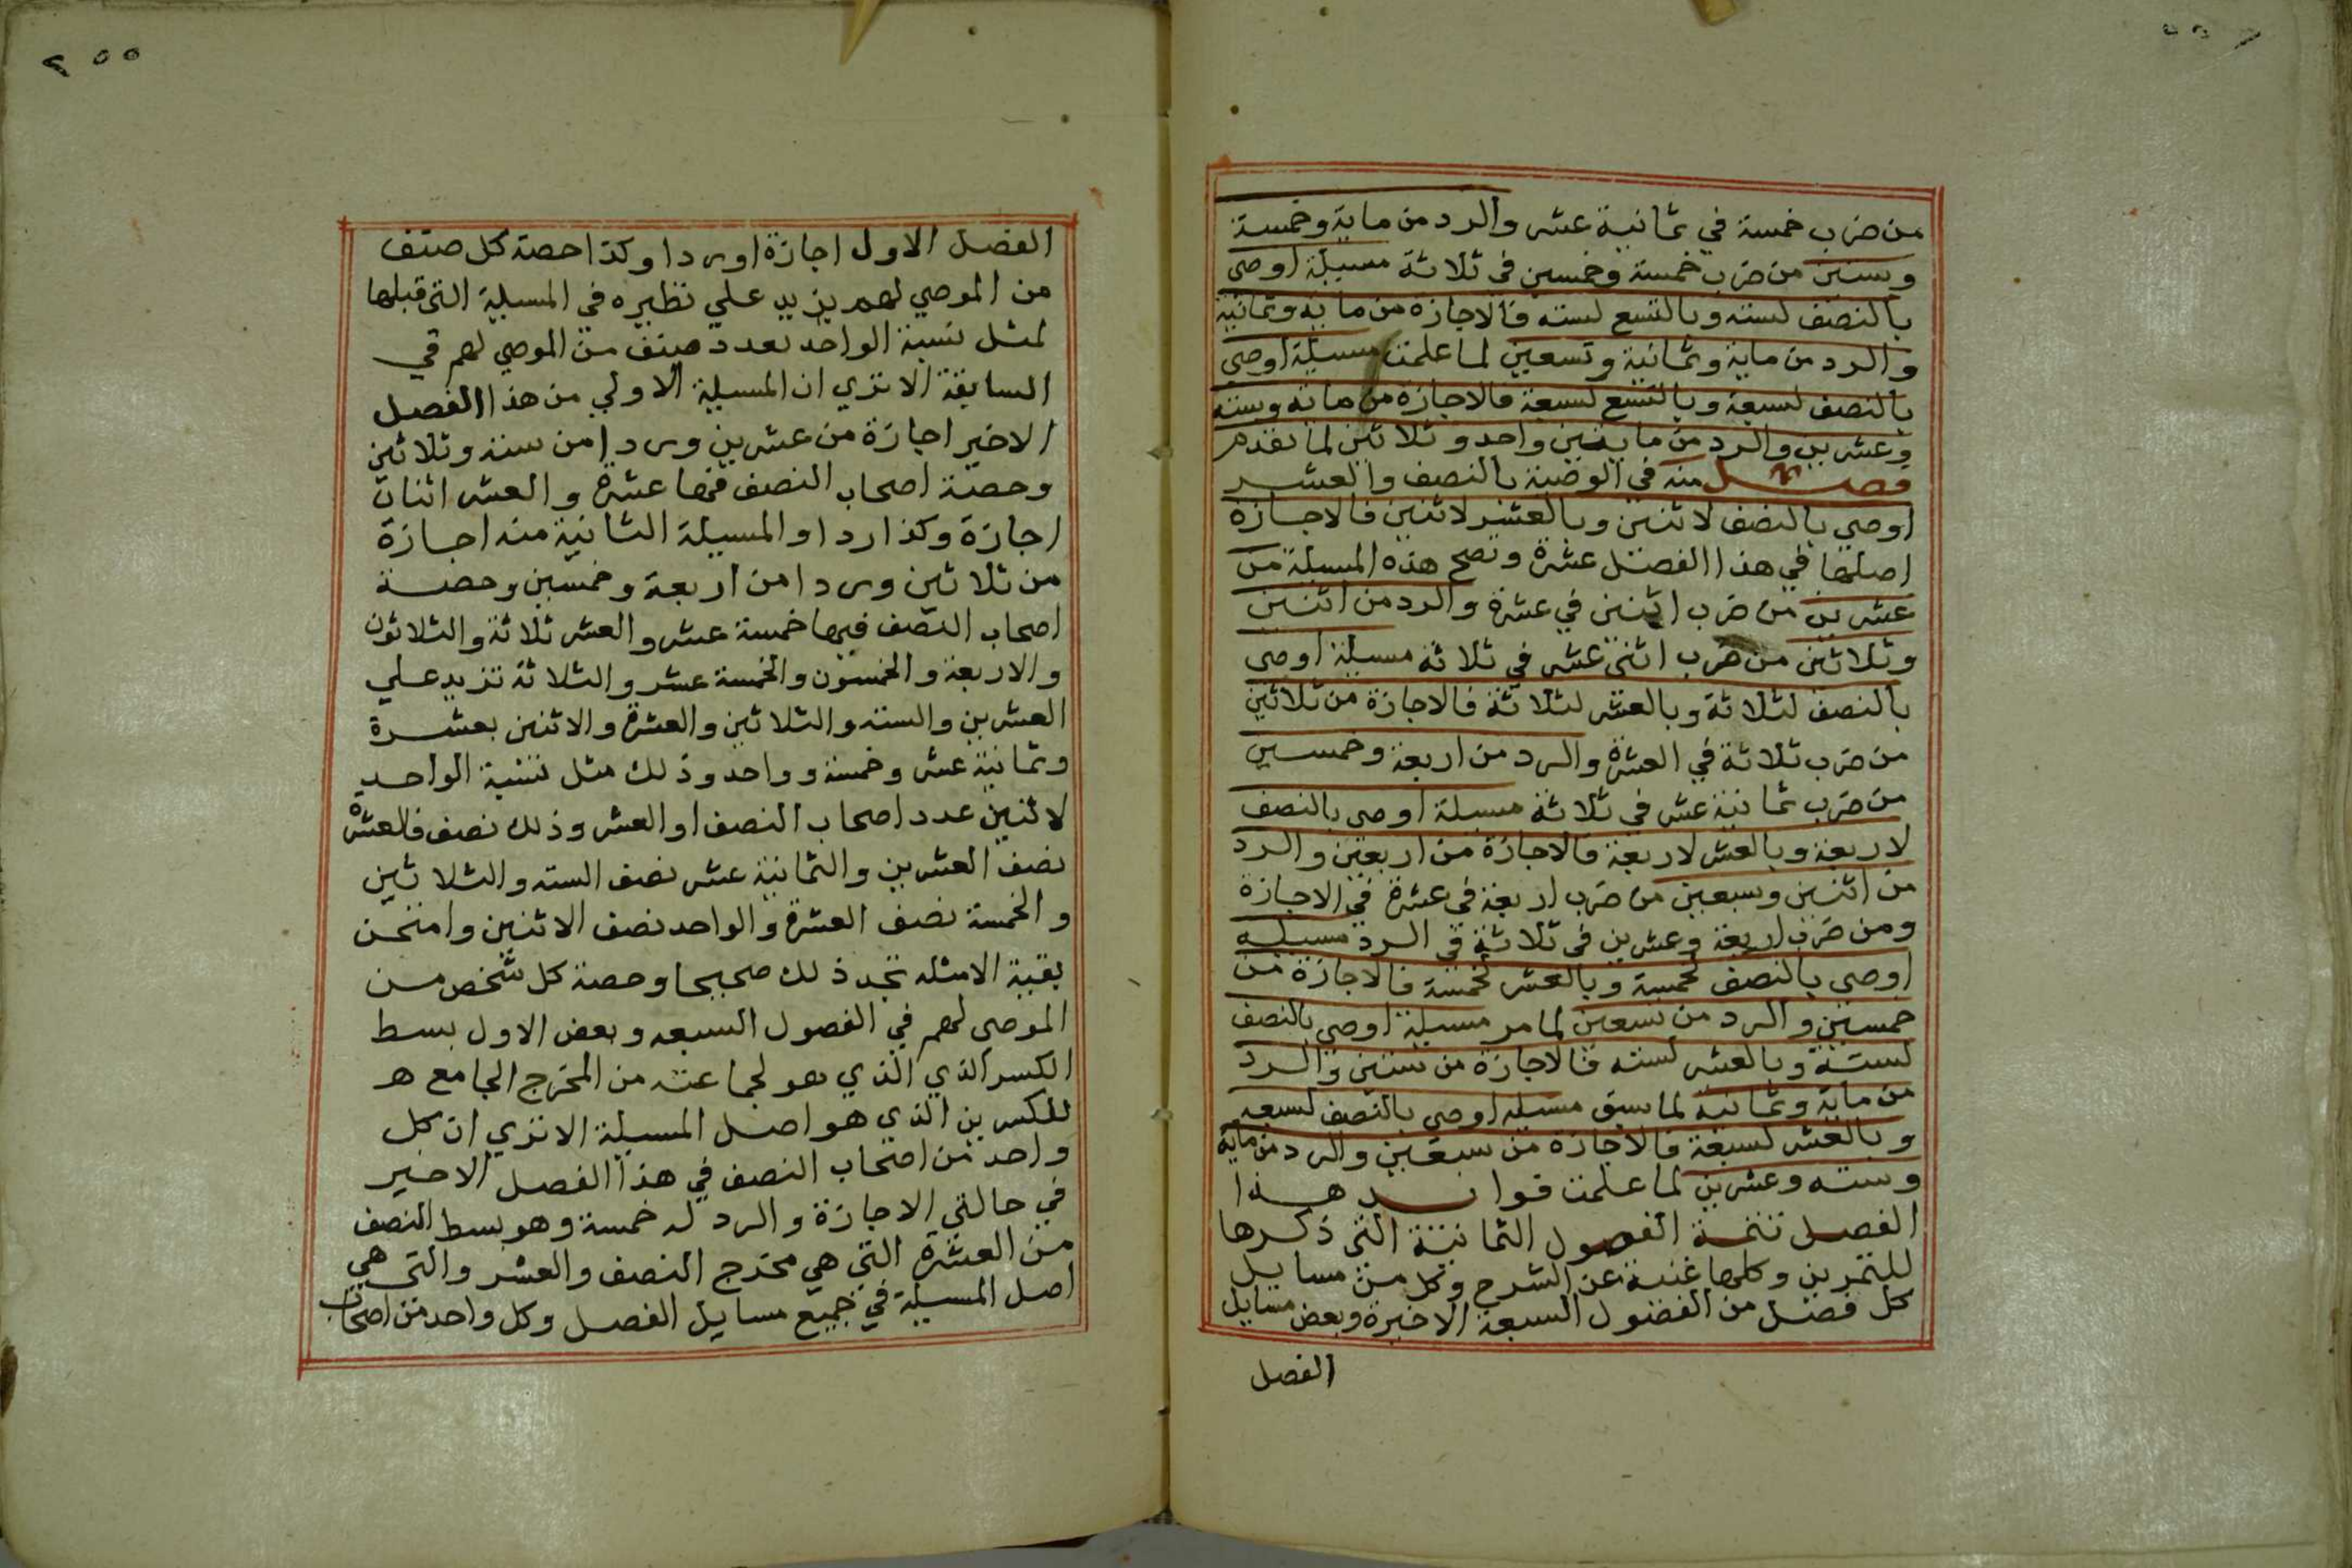 من ضرب خمسة في ثمانية عشر والرد من ماية وخمسة
وستين من ضرب خمسة وخمسين في ثلاثة مسيلة اوصي
بالنصف لسته وبالتسع لسته فالاجازة من ماية وثمانية
والرد من ماية وثمانية وتسعين لما علمت مسيلة اوصي
بالنصف لسبعة وبالتسع لسبعة فالاجازة من ماية وسته
وعشرين والرد من مايتين واحد وثلاثين لما تقدم
فصل منه في الوصية بالنصف والعشر
اوصي بالنصف لاثنين وبالعشر لاثنين فالاجازة
اصلها في هذا الفصل عشرة وتصح هذه المسيلة من
عشرين من ضرب اثنين في عشرة والرد من اثنين
وثلاثين من ضرب اثني عشر في ثلاثة مسيلة اوصي
بالنصف لثلاثة وبالعشر لثلاثة فالاجازة من ثلاثين
من ضرب ثلاثة في العشرة والرد من اربعة وخمسين
من ضرب ثمانية عشر في ثلاثة مسيلة اوصي بالنصف
لاربعة وبالعشر لاربعة فالاجازة من اربعين والرد
من اثنين وسبعين من ضرب اربعة في عشرة في الاجازة
ومن ضرب اربعة وعشرين في ثلاثة في الرد مسيله
اوصي بالنصف لخمسة وبالعشر لخمسة فالاجازة من
خمسين والرد من تسعين لما مر مسيلة اوصي بالنصف
لستة وبالعشر لسته فالاجازة من ستين والرد
من ماية وثمانية لما سبق مسيله اوصي بالنصف لسبعه
وبالعشر لسبعة فالاجازة من سبعين والرد من ماية
وسته وعشرين لما علمت فوايد هذا
الفصل تتمة الفصول الثمانية التي ذكرها
للتمرين وكلها غنية عن الشرح وكل من مسايل
كل فصل من الفصول السبعة الاخيرة وبعض مسايل
الفصل
٢٥٥
الفصل الاول اجازة او ردا وكذا حصة كل صنف
من الموصي لهم يزيد علي نظيره في المسيلة التي قبلها
لمثل نسبة الواحد لعدد صنف من الموصي لهم في
السابقة الا تري ان المسيلة الاولي من هذا الفصل
الاخير اجازة من عشرين وردا من ستة وثلاثين
وحصة اصحاب النصف فيها عشرة والعشر اثنان
اجازة وكذا ردا والمسيلة الثانية منه اجازة
من ثلاثين وردا من اربعة وخمسين وحصة
اصحاب النصف فيها خمسة عشر والعشر ثلاثة والثلاثون
والاربعة والخمسون والخمسة عشر والثلاثة تزيد علي
العشرين والسته والثلاثين والعشرة والاثنين بعشرة
وثمانية عشر وخمسة وواحد وذلك مثل نسبة الواحد
لاثنين عدد اصحاب النصف او العشر وذلك نصف فالعشرة
نصف العشرين والثمانية عشر نصف السته والثلاثين
والخمسة نصف العشرة والواحد نصف الاثنين وامتحن
بقية الامثله تجد ذلك صحيحا وحصة كل شخص من
الموصي لهم في الفصول السبعه وبعض الاول بسط
الكسر الذي الذي هو لجماعته من المخرج الجامع هـ
للكسرين الذي هو اصل المسيلة الا تري ان كل
واحد من اصحاب النصف في هذا الفصل الاخير
في حالتي الاجازة والرد له خمسة وهو بسط النصف
من العشرة التي هي مخرج النصف والعشر والتي هي
اصل المسيلة في جميع مسايل الفصل وكل واحد من اصحاب